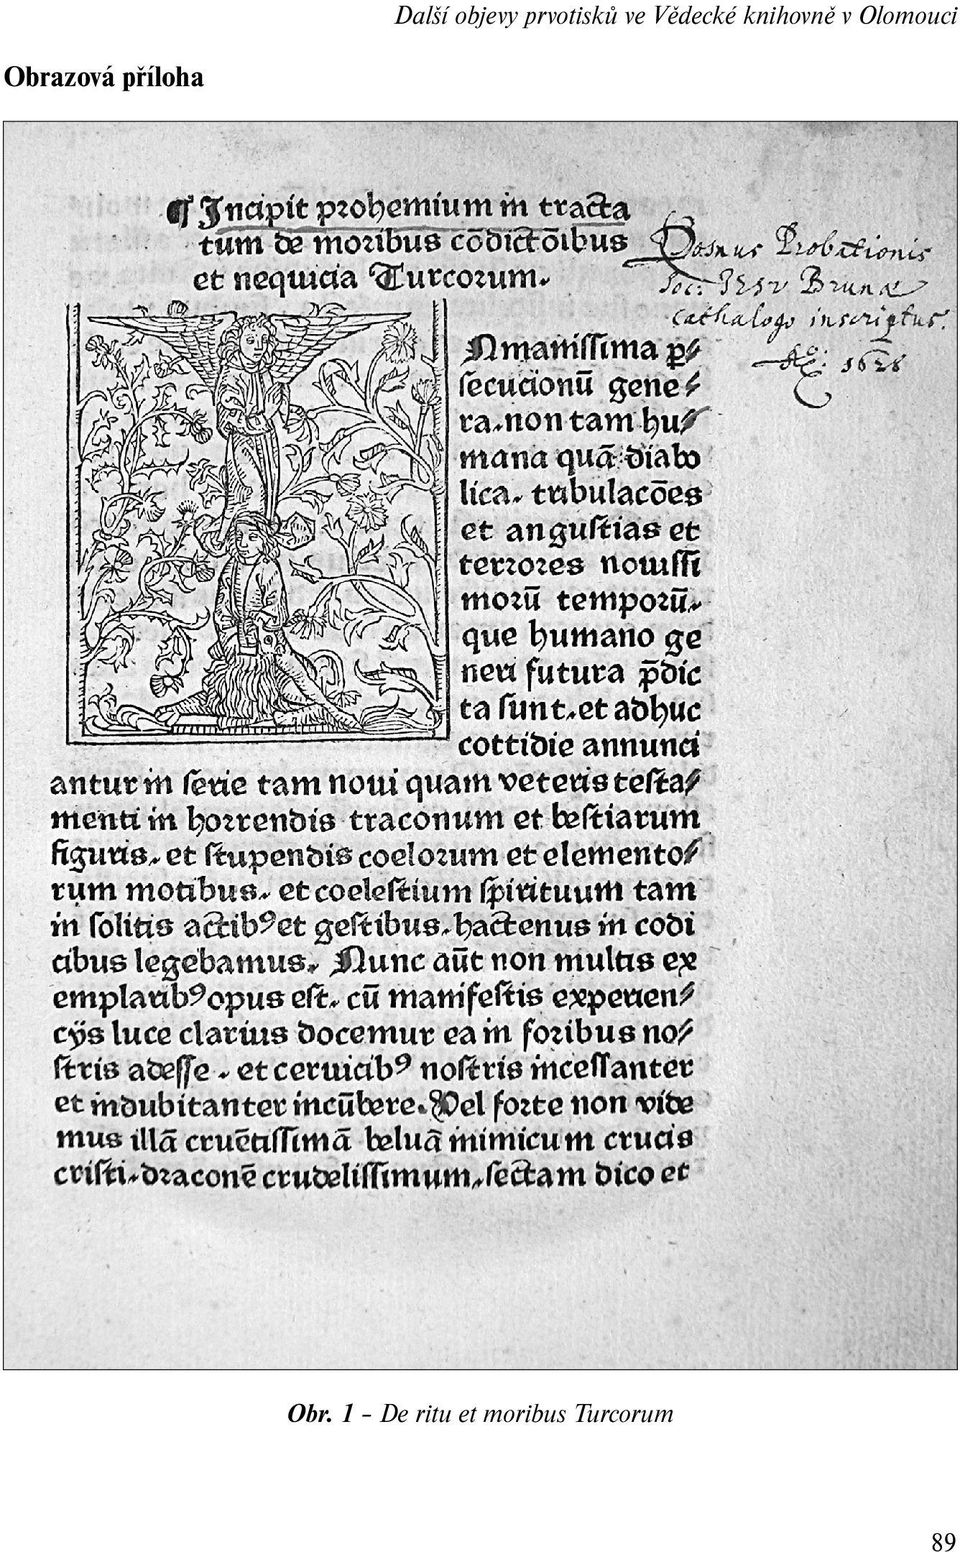 Další objevy prvotisků ve Vědecké knihovně v Olomouci
Obrazová příloha
¶ Incipit prohemium in tracta
tum de moribus cōdictōibus
et nequicia Turcorum.
Domus Probationis
Soc: Jesv Brunæ
cathalogo inscriptus.
Aº: 1628
Nmanissima p̱⸗
secucionū gene⸗
ra. non tam hu⸗
mana quā diabo
lica. tribulacōes
et angustias et
terrores nouissi
morū temporū.
que humano ge
neri futura p̄dic
ta sunt. et adhuc
cottidie annunci
antur in serie tam noui quam veteris testa⸗
menti in horrendis traconum et bestiarum
figuris. et stupendis coelorum et elemento⸗
rum motibus. et coelestium spirituum tam
in solitis actibꝰ et gestibus. hactenus in codi
cibus legebamus. Nunc aūt non multis ex
emplaribꝰ opus est. cū manifestis experien⸗
cijs luce clarius docemur ea in foribus no⸗
stris adesse. et ceruicibꝰ nostris incessanter
et indubitanter incūbere. Vel forte non vide
mus illā cruētissimā beluā inimicum crucis
cristi. draconē crudelissimum. sectam dico et
Obr. 1 – De ritu et moribus Turcorum
89